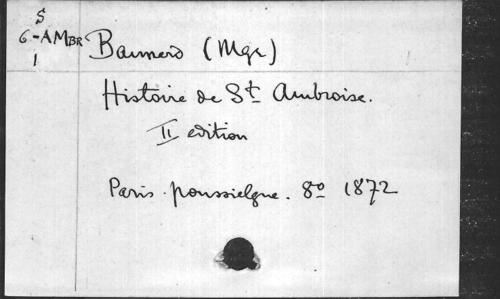 S
6-AMBR
1
Baunard (Mgr)
Histoire de St Ambroise.
II edition
Paris. poussielgue. 8º 1872